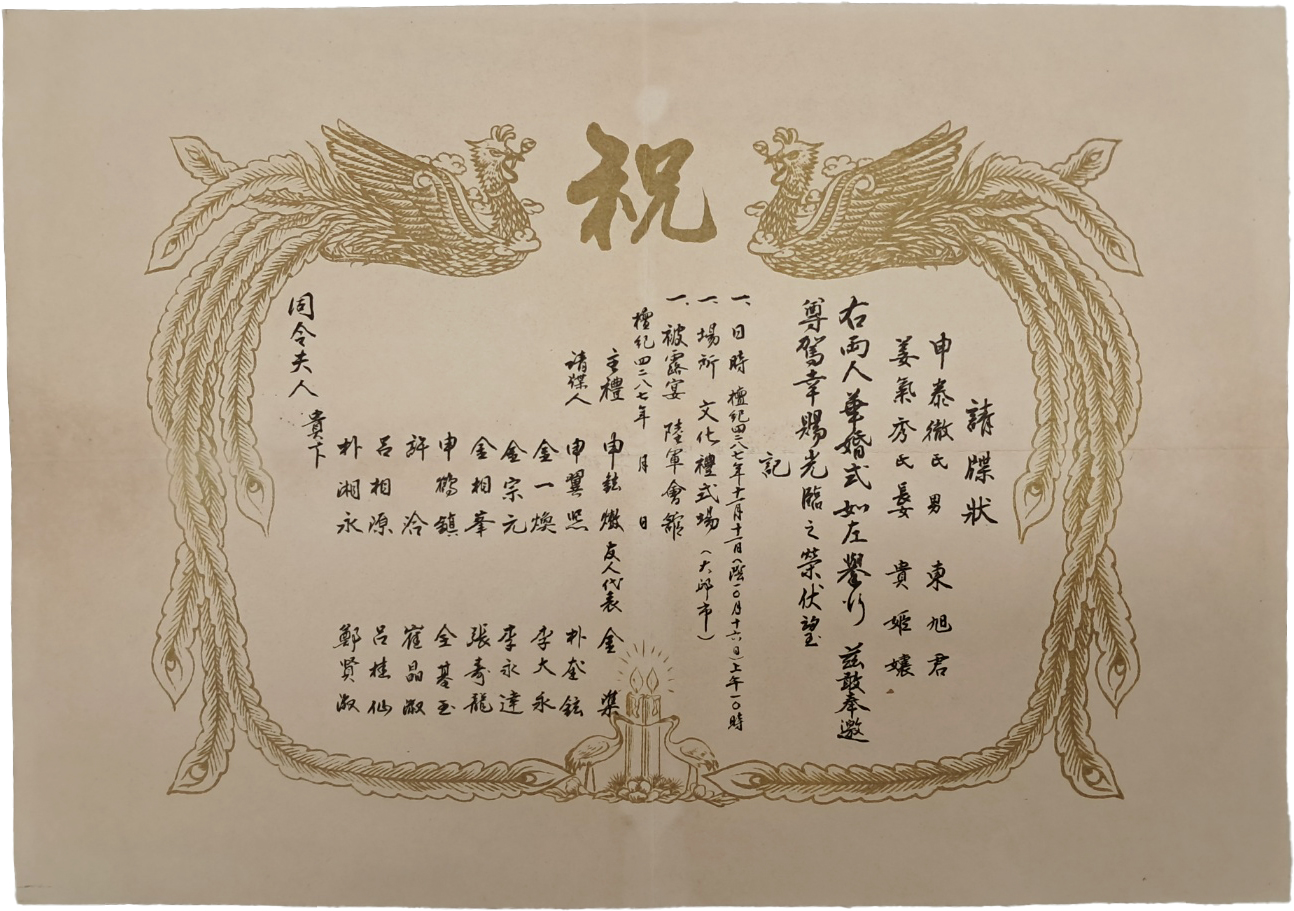 祝
請牒狀
申泰徹氏 男 東旭君
姜氣秀氏 長女 貴姬孃
右兩人華婚式如左擧行 茲敢奉邀
尊駕幸賜光臨之榮伏望
記
一、日時 檀紀四二八七年十一月十一日(陰一〇月十六日)上午一〇時
一、場所 文化禮式場 (大邱市)
一、被露宴 陸軍會館
檀紀四二八七年 月 日
主禮 申鉉徹 友人代表 金 榘
請牒人 申翼熙 朴奎鉉
金一煥 李大永
金宗元 李永達
金相峯 張壽龍
申鶴鎮 全基玉
許泠 崔晶淑
呂相源 呂桂仙
朴湘永 鄭賢淑
貴下
同令夫人